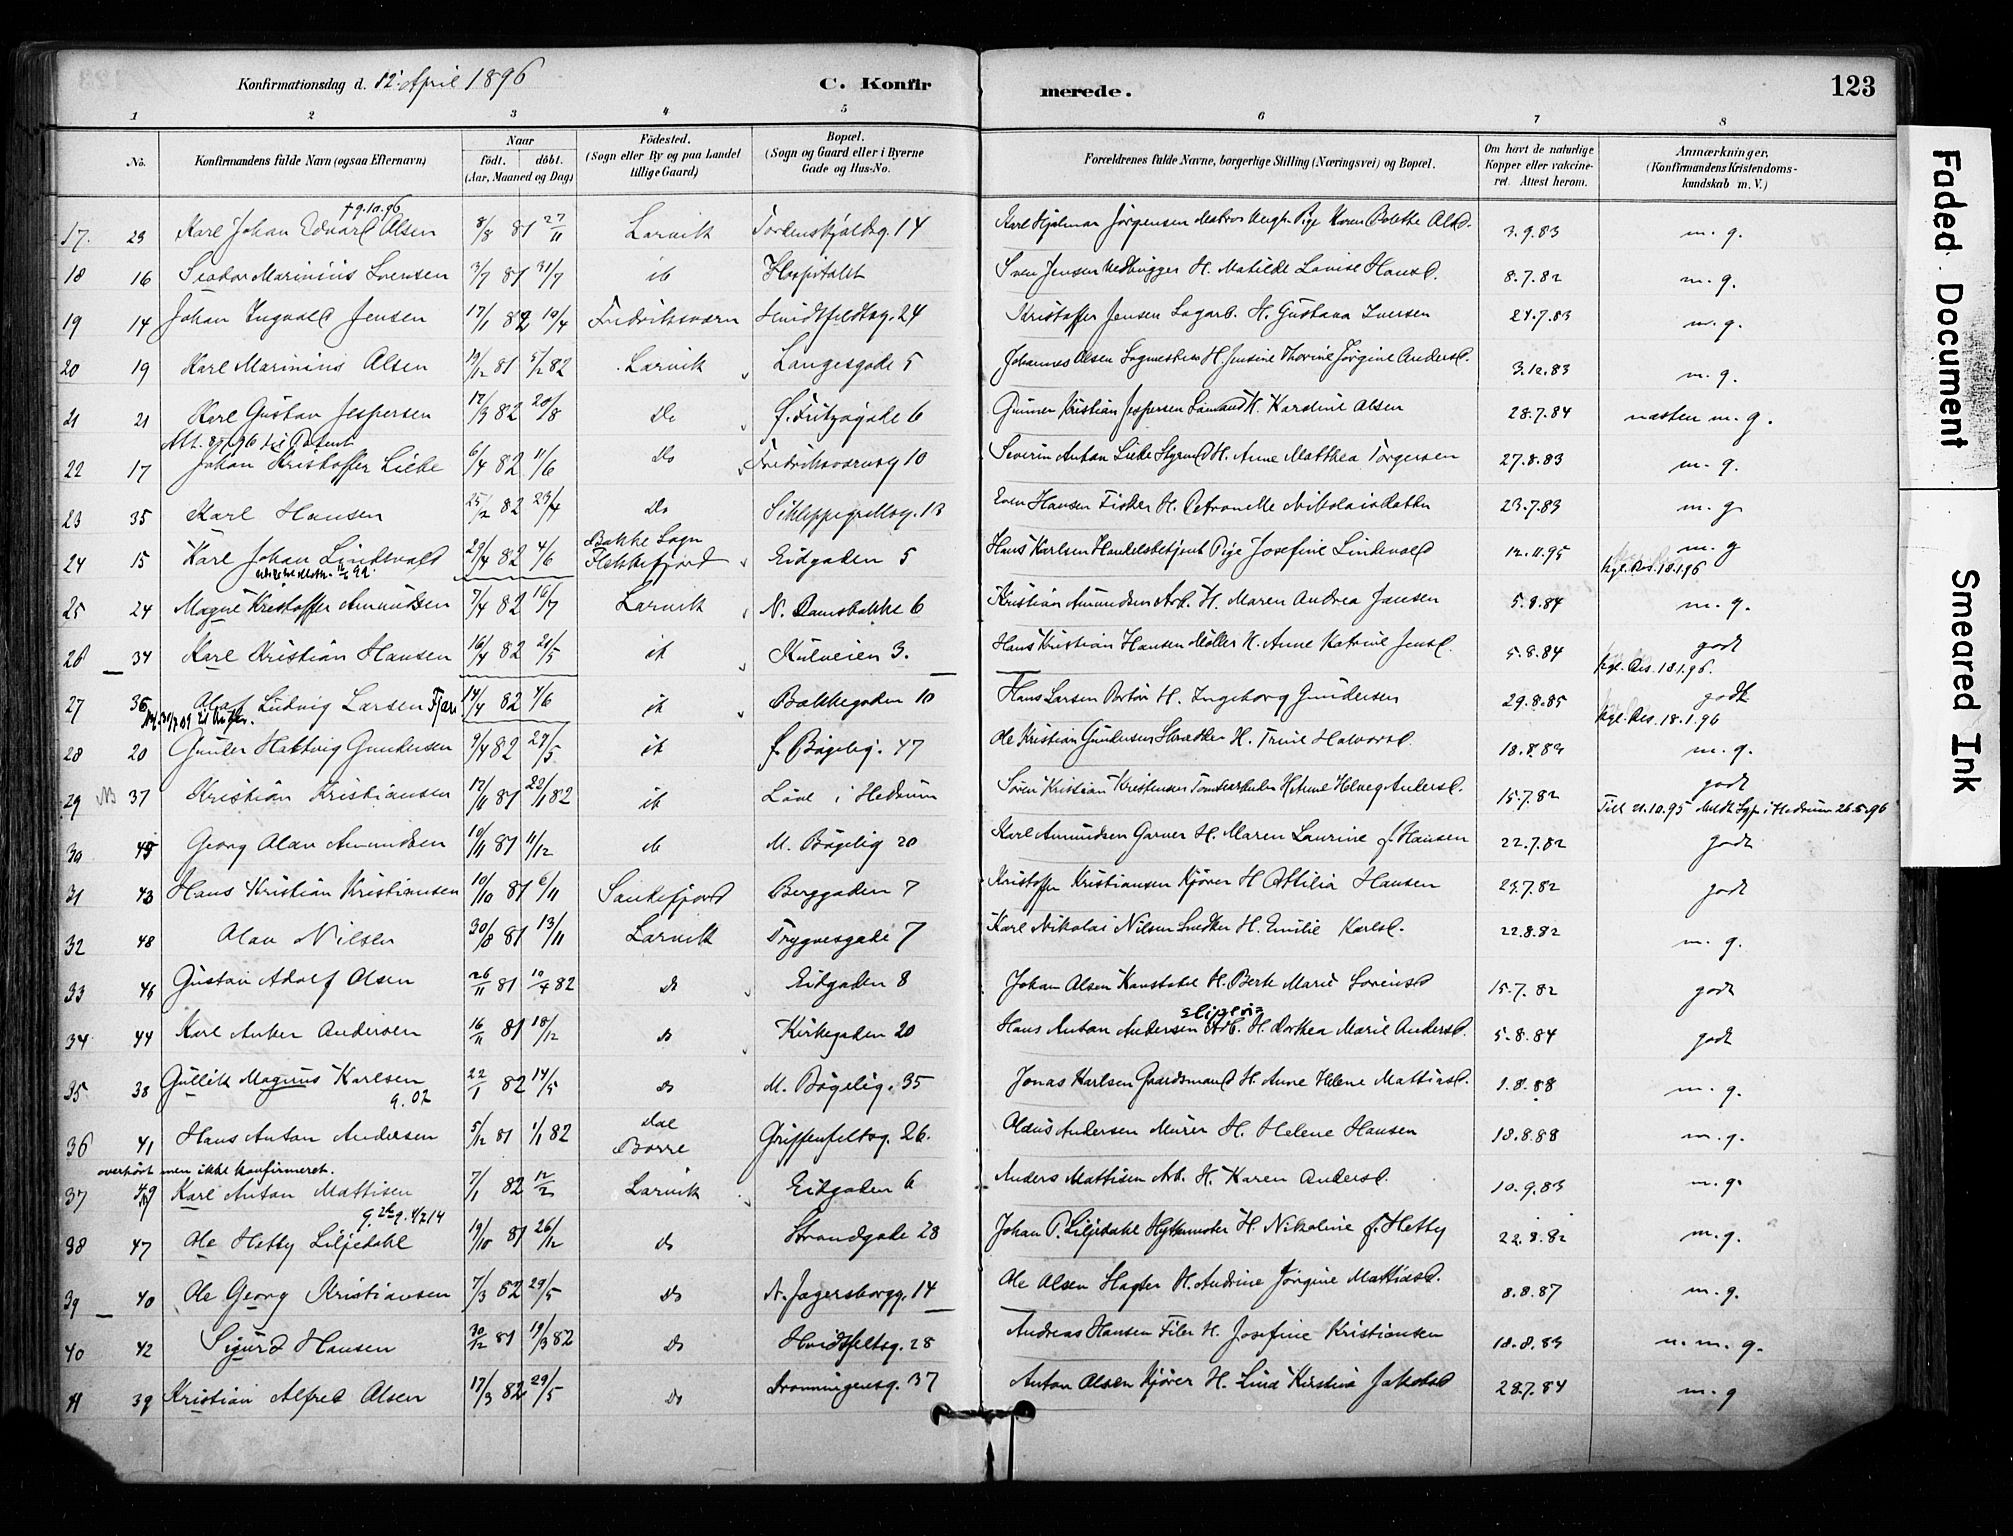 Konfirmationsdag d. 12' April 1896
C. Konfir
merede.
123
1 2 3 4 5 6 7 8
No.
Konfirmandens fulde Navn (ogsaa Efternavn)
Naar
födt. döbt.
(Aar, Maaned og Dag)
Födested.
(Sogn eller By og paa Landet
tillige Gaard)
Bopæl.
(Sogn og Gaard eller i Byerne
Gade og Hus-No.
Forældrenes fulde Navne, borgerlige Stilling (Næringsvei) og Bopæl.
Om havt de naturlige
Kopper eller vakcine-
ret. Attest herom.
Anmærkninger.
(Konfirmandens Kristendoms-
kundskab m. V.)
† 9.10.96
17. 23 Karl Johan Edvard Olsen 8/8 81 27/11 Larvik Tordenskjoldsg. 14 Karl Hjalmar Jörgensen Pige Karen Bolethe Olsd. 3.9.83 m. g.
18 16 Marinius Svensen 3/7 81 31/7 ib Hospitalet Sven Jensen Vedhugger H. Matilde Lovise Hansd. 8.7.82 m. g.
19 14 Johan Ingvald Jensen 17/1 82 10/4 Fredriksværn Hvidtfeldtsg. 24 Kristoffer Jensen Sagarb. H. Gustava Iversen 24.7.83 m. g.
20 19 Karl Marinius Olsen 19/12 81 5/2 82 Larvik Langesgade 5 Johannes Olsen Sagmester H. Jensine Thorine Jörgine Andersd. 3.10.83 m. g.
21 21 Karl Gustav Jespersen 17/3 82 20/8 Do f. Fritzøgade 6 Gunner Kristian Jespersen Sömand H. Karoline Olsen 28.7.84 næsten m. g.
22 17 Johan Kristoffer Liebe 6/4 82 11/6 Do Fredriksværnsg 10 Severin Anton Liebe Styrmd H. Anne Matthea Torgersen 27.8.83 m. g.
23 35 Karl Hansen 25/2 82 23/4 Do Schleppegrellsg. 13 Even Hansen Fisker H. Petronelle Nikolaisdatter 23.7.83 m. g
24 15 Karl Johan Lindvald 29/4 82 4/6 Bakke Sogn Flekkefjord Eidgaden 5 Hans Karlsen Handelsbetjent Pige Josefine Lindvald 12.11.95 m. g
kgl. Res. 18.1.96
25 24 Magne Kristoffer Amundsen 7/4 82 16/7 Larvik N. Damsbakke 6 Kristian Amundsen Arb. H. Maren Andrea Jansen 5.8.84 m. g.
26 34 Karl Kristian Hansen 16/4 82 21/5 ib Kulveien 3. Hans Kristian Hansen Møller H. Anne Katrine Jensd. 5.8.84 godt
kgl. Res. 18.1.96.
27 36 Olaf Ludvig Larsen 14/4 82 4/6 ib Bakkegaden 10 Hans Larsen H. Ingeborg Gundersen 29.8.85 godt
kgl. Res. 18.1.96
28 20 Gunder Hartvig Gundersen 9/4 82 29/5 ib f. Bögelig. 47 Ole Kristian Gundersen Skrædder H. Trine Halvorsd. 18.8.83 m. g.
29 NB 37 Kristian Kristiansen 17/11 81 22/1 82 ib i Hedrum Sören Kristian Kristensen H. Anne Helene Andersd. 15.7.82 godt
Till 21.10.95 i Hedrum 26.5.96
30 45 Georg Olav Amundsen 10/11 81 11/12 ib M. Bögelig 20 Karl Amundsen Garver H. Maren Laurine f. Hansen 22.7.82 godt
31 43 Hans Kristian Kristiansen 10/10 81 6/11 Sandefjord Berggaden 7 Kristoffer Kristiansen Kjörer H. Hansen 29.7.82 godt
32 48 Olav Nilsen 30/8 81 13/11 Larvik Trygvesgade 7 Karl Nikolai Nilsen Snedker H. Emilie Karlsd. 22.8.82 m. g.
33 46 Gustav Adolf Olsen 26/11 81 10/4 82 do Eidgaden 8 Johan Olsen Konstabel H. Berte Marie Sörensd 15.7.82 godt
34 44 Karl Anker Andersen 16/11 81 18/12 do Kirkegaden 20 Hans Anton Andersen Arb. H. Dorthea Marie Andersd. 5.8.84 godt
35 38 Gullik Magnus Karlsen 22/1 82 14/5 do M. Bögelig. 35 Jonas Karlsen Gaardsmand H. Anne Helene Mattiasd. 1.8.88 m. g.
9.02
36 41 Hans Anton Andersen 5/12 81 1/1 82 Borre Griffenfeltsg. 26. Andersen Murer H. Helene Hansen 18.8.88 m. g.
overhört men ikke konfirmeret.
37 49 Karl Anton Mattisen 7/1 82 12/2 Larvik Eidgaden 6 Anders Mattisen Arb. H. Karen Andersd. 10.9.83 m. g.
38 47 Ole Hetty Liljedahl 19/10 81 26/12 do Strandgade 28 Johan P. Liljedahl Hyttemester H. Nikoline f. Hetty 22.8.82 m. g.
39 40 Ole Georg Kristiansen 7/3 82 29/5 do N. Jegersborgg. 14 Ole Olsen H. Andrine Jörgine Mattiasd. 8.8.87 m. g.
40 42 Sigurd Hansen 30/12 81 19/3 82 do Hvidtfeltsg. 28 Andreas Hansen Filer H. Josefine Kristiansen 18.8.83 n. m. g.
41 39 Kristian Alfred Olsen 17/3 82 29/5 do Dronningensg. 37 Anton Olsen Kjörer H. Kirstine Jakobsd 28.7.84 m. g
Faded Document
Smeared Ink